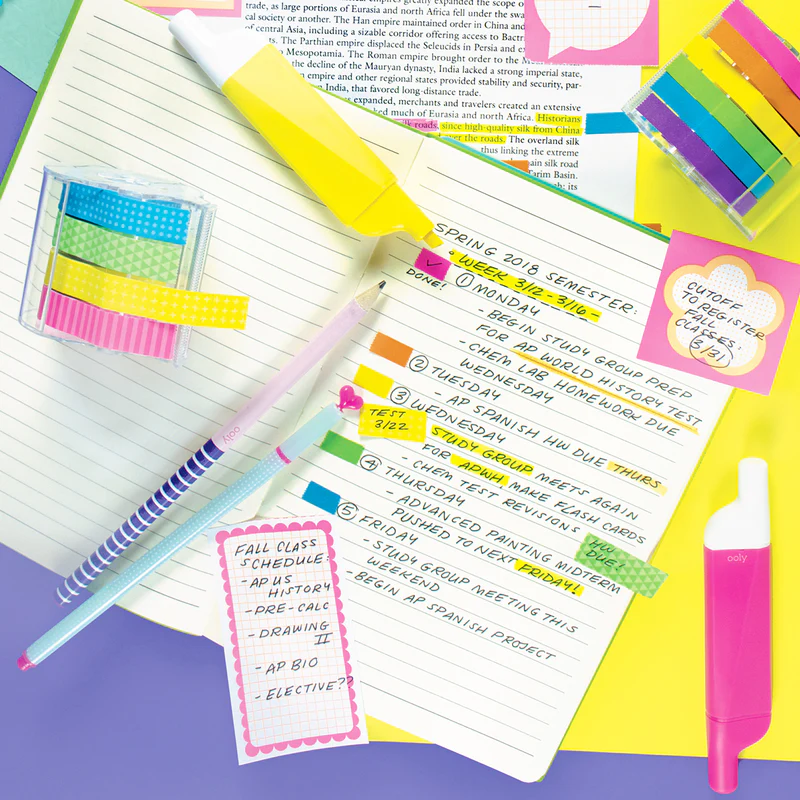 expanded the scope o
trade, as large portions of Eurasia and north Africa fell under the swa
cal society or another. The Han empire maintained order in China and
of central Asia, including a sizable corridor offering access to Bactr
The Parthian empire displaced the Seleucids in Persia and e
Mesopotamia. The Roman empire brought order to the
the decline of the Mauryan dynasty, India lacked a strong imperial state,
empire and other regional states provided stability and security, par-
India, that favored long-distance trade.
expanded, merchants and travelers created an extensive
much of Eurasia and north Africa. Historians
roads, since high-quality silk from China
over the roads. The overland silk
thus linking the extreme
main silk road
Tarim Basin.
its
SPRING 2018 SEMESTER:
• WEEK 3/12-3/16-
✓
DONE!
① MONDAY
- BEGIN STUDY GROUP PREP
FOR AP WORLD HISTORY TEST
- CHEM LAB HOMEWORK DUE
WEDNESDAY
② TUESDAY
- AP SPANISH HW DUE THURS.
③ WEDNESDAY
TEST
3/22
STUDY GROUP MEETS AGAIN
FOR APWH, MAKE FLASH CARDS
- CHEM TEST REVISIONS
④ THURSDAY
- ADVANCED PAINTING MIDTERM
PUSHED TO NEXT FRIDAY!
HW
DUE!
⑤ FRIDAY
- STUDY GROUP MEETING THIS
WEEKEND
- BEGIN AP SPANISH PROJECT
CUTOFF
TO REGISTER
FALL
CLASSES:
3/31
FALL CLASS
SCHEDULE:
- AP US
HISTORY
- PRE-CALC
- DRAWING
II
- AP BIO
- ELECTIVE??
ooly
ooly